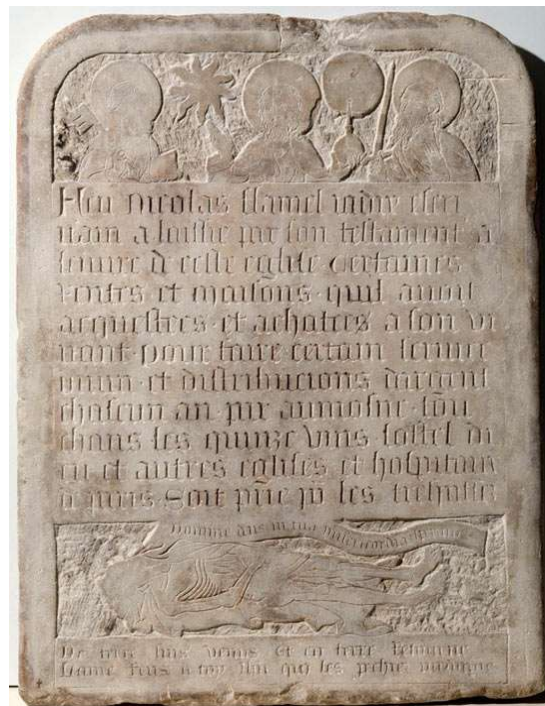 feu nicolas flamel iadiz escri
uain a laissie par son testament a
leuure de ceste eglise certaines
rentes et maisons quil auoit
acquestees et achatees a son vi
uant pour faire certain seruice
diuin et distribucions dargent
chascun an par aumosne tou
chans les quinze vins lostel di
eu et autres eglises et hospitaux
de paris Soit prie pour les trespassez
domine deus in tua misericordia speraui
De terre suis venus et en terre retourne
lame rens a toy qui les pechiez pardonne